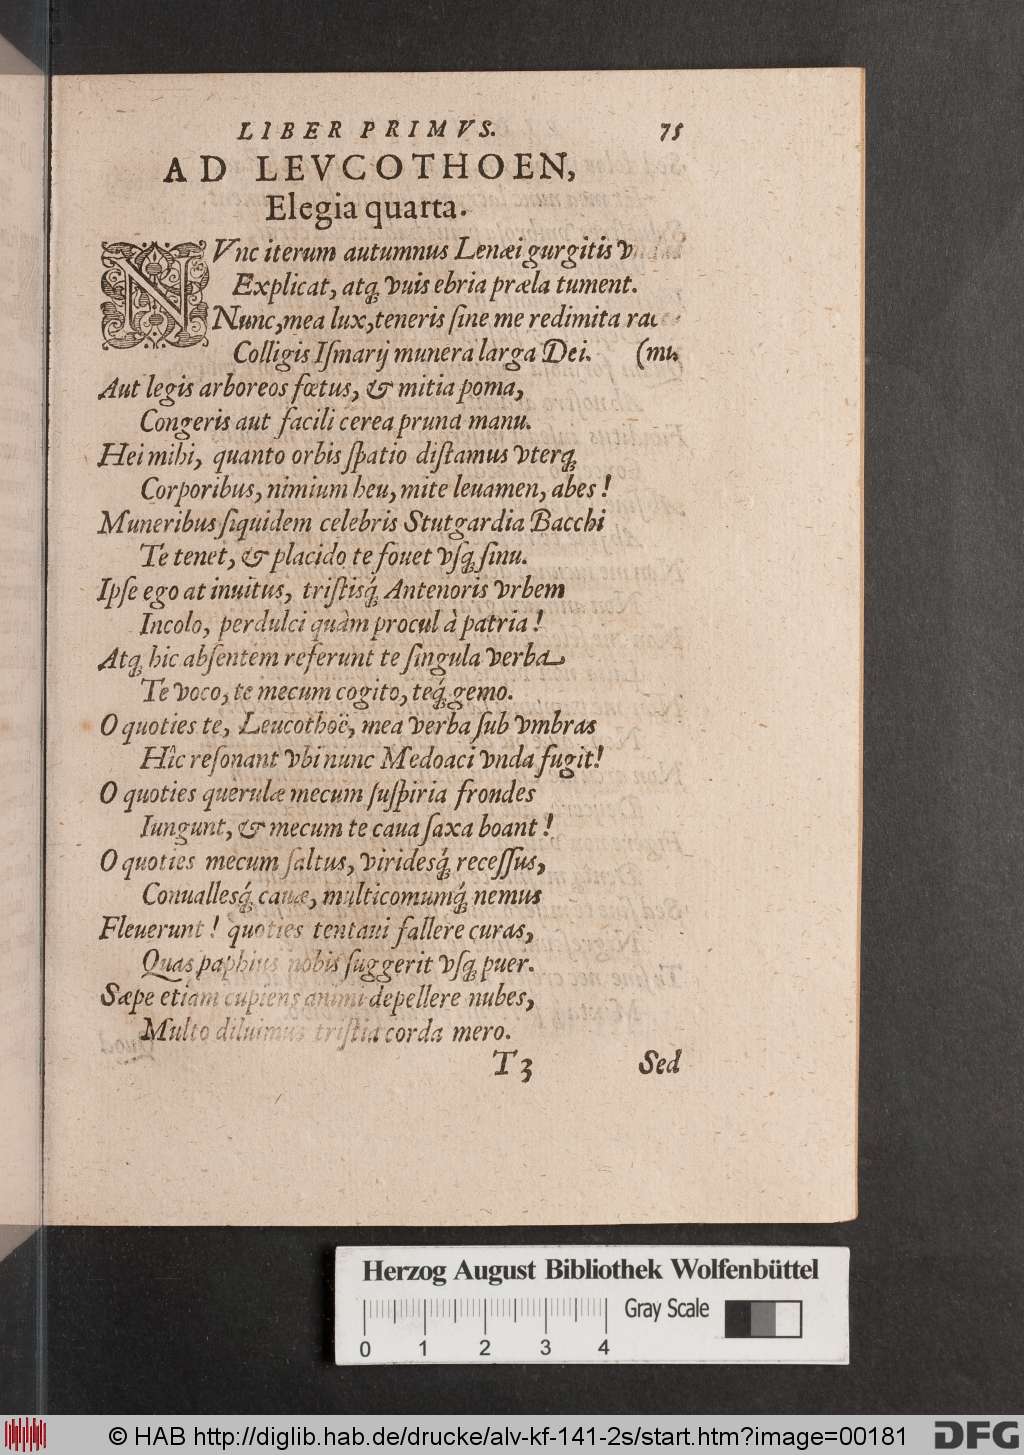 LIBER PRIMVS. 75
AD LEVCOTHOEN,
Elegia quarta.
NVnc iterum autumnus Lenæi gurgitis
Explicat, atq; vuis ebria præla tument.
Nunc, mea lux, teneris sine me redimita race-
Colligis Ismarij munera larga Dei. (mis
Aut legis arboreos fœtus, & mitia poma,
Congeris aut facili cerea pruna manu.
Hei mihi, quanto orbis spatio distamus vterq;
Corporibus, nimium heu, mite leuamen, abes!
Muneribus siquidem celebris Stutgardia Bacchi
Te tenet, & placido te fouet vsq; sinu.
Ipse ego at inuitus, tristisq́; Antenoris vrbem
Incolo, perdulci quàm procul à patria!
Atq; hic absentem referunt te singula verba
Te voco, te mecum cogito, teq́; gemo.
O quoties te, Leucothoë, mea verba sub vmbras
Hîc resonant vbi nunc Medoaci vnda fugit!
O quoties querulæ mecum suspiria frondes
Iungunt, & mecum te caua saxa boant!
O quoties mecum saltus, viridesq́; recessus,
Conuallesq́; cauæ, multicomumq́; nemus
Fleuerunt! quoties tentaui fallere curas,
Quas paphius nobis suggerit vsq; puer.
Sæpe etiam cupiens animi depellere nubes,
Multo diluimus tristia corda mero.
T3 Sed
Herzog August Bibliothek Wolfenbüttel
Gray Scale
0 1 2 3 4
© HAB http://diglib.hab.de/drucke/alv-kf-141-2s/start.htm?image=00181
DFG